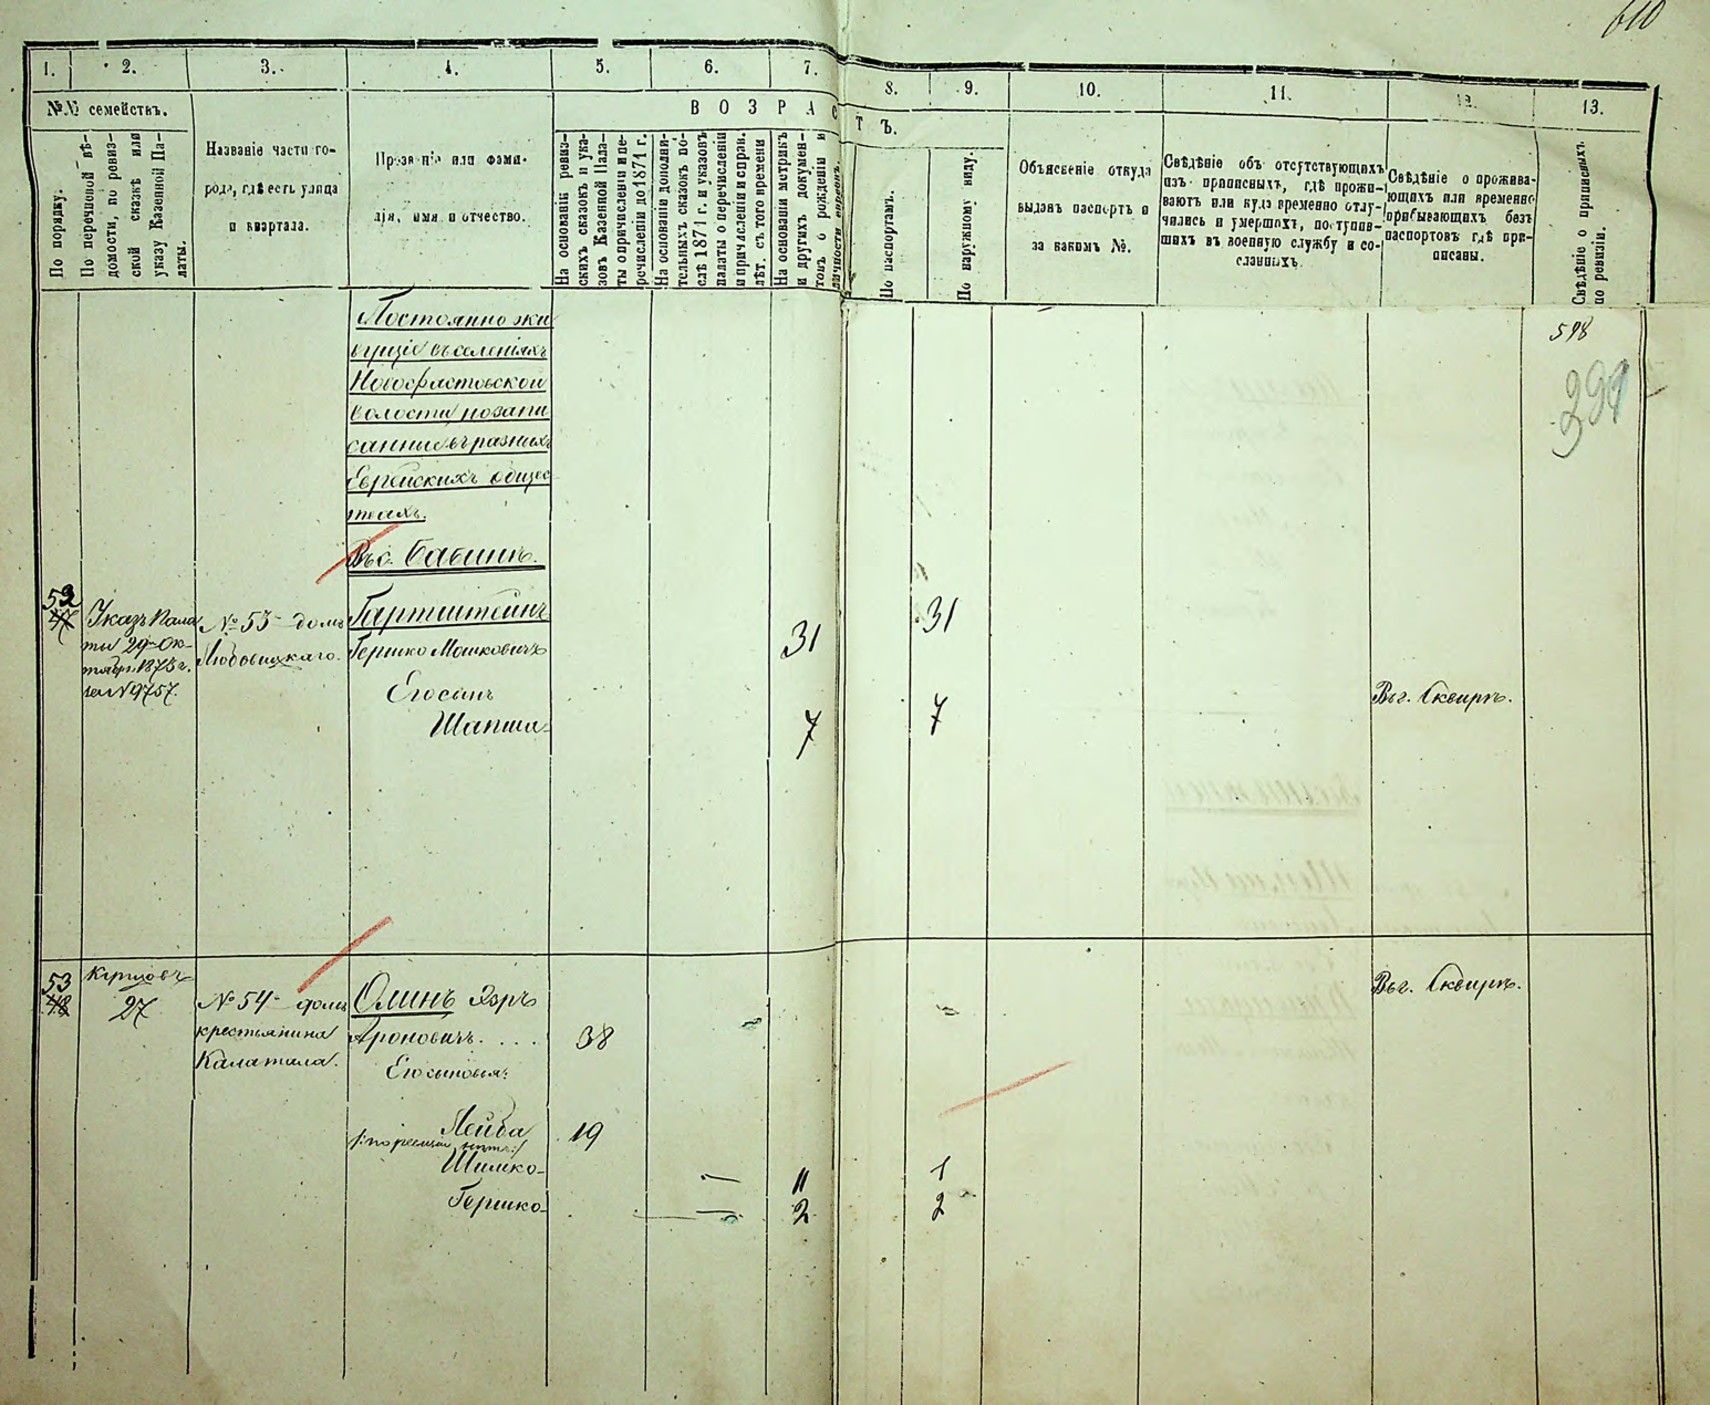 610
1.
2.
3.
4.
5.
6.
7.
8.
9.
10.
11.
12.
13.
№№ семействъ.
По порядку.
По перечневой вѣ-
домости, по ревиз-
ской сказкѣ или
указу Казенной Па-
латы.
Названіе части го-
рода, гдѣ есть улица
и квартала.
Прозваніе или фами-
лія, имя и отчество.
ВОЗРАСТЪ.
На основаніи ревиз-
скихъ сказокъ и ука-
зовъ Казенной Пала-
ты о причисленіи и пе-
речисленіи до 1871 г.
На основаніи дополни-
тельныхъ сказокъ по-
слѣ 1871 г. и указовъ
палаты о перечисленіи
и причисленіи и справ.
лѣт. съ того времени
На основаніи метрикъ
и другихъ докумен-
товъ о рожденіи и
личности евреевъ.
По паспортамъ.
По наружному виду.
Объясненіе откуда
выданъ паспортъ и
за какимъ №.
Свѣдѣніе объ отсутствующихъ
изъ приписныхъ, гдѣ прожи-
ваютъ или куда временно отлу-
чились и умершихъ, поступив-
шихъ въ военную службу и со-
сланныхъ.
Свѣдѣніе о прожива-
ющихъ или временно
прибывающихъ безъ
паспортовъ гдѣ при-
писаны.
Свѣдѣніе о приписныхъ
по ревизіи.
598
Постоянно жи
вущіе въ селеніяхъ
Новофастовской
волости позапи
санные въ разныхъ
Еврейскихъ общес
твахъ.
Въ с. Бабинѣ.
52
47
Указъ Пала
ты 29 Ок-
тября 1875 г.
за № 9757.
№ 53 домъ
Любовицкаго.
Гартштейнъ
Гершко Мошковичъ
31
31
Его сынъ
Шапша
7
7
Въ г. Сквирѣ.
53
48
27
№ 54 домъ
крестьянина
Калатала.
Олинъ Яэръ
Ароновичъ. . . .
38
Въ г. Сквирѣ.
Его сыновья:
Лейба
19
Шимко
11
1
Гершко
2
2